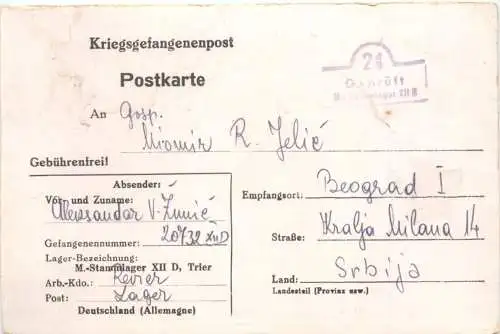 Kriegsgefangenenpost
24
Geprüft
Postkarte
An Gosp.
Miomir R. Jelić
Gebührenfrei!
Absender:
Vor- und Zuname:
Alessandar V.
Gefangenennummer: 20732 XIID
Lager-Bezeichnung:
M.-Stammlager XII D, Trier
Arb.-Kdo.: Revier
Post: Lager
Deutschland (Allemagne)
Empfangsort: Beograd I
Straße: Kralja Milana 14
Land: Srbija
Landesteil (Provinz usw.)